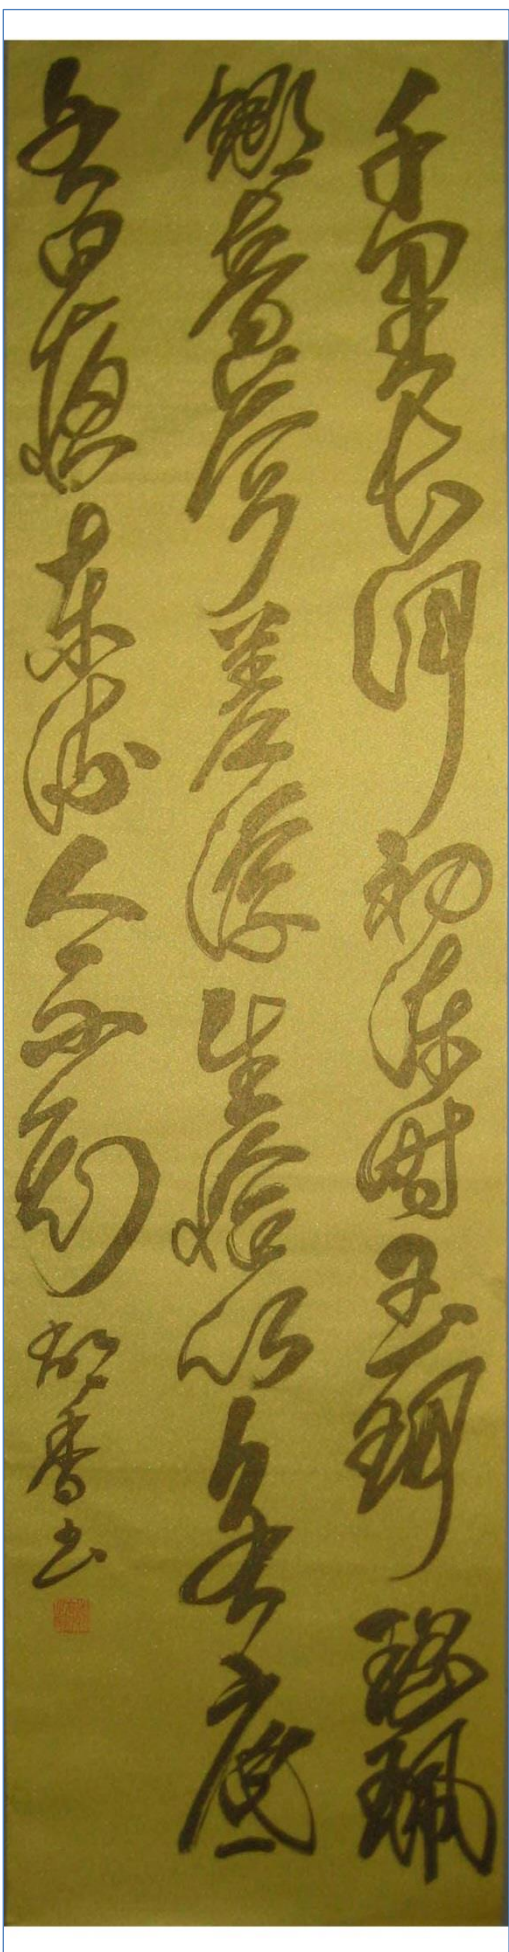 千里長河初凍時玉珂瑤珮
響參差浮生恰似冰底
水日夜東流人不知
香书